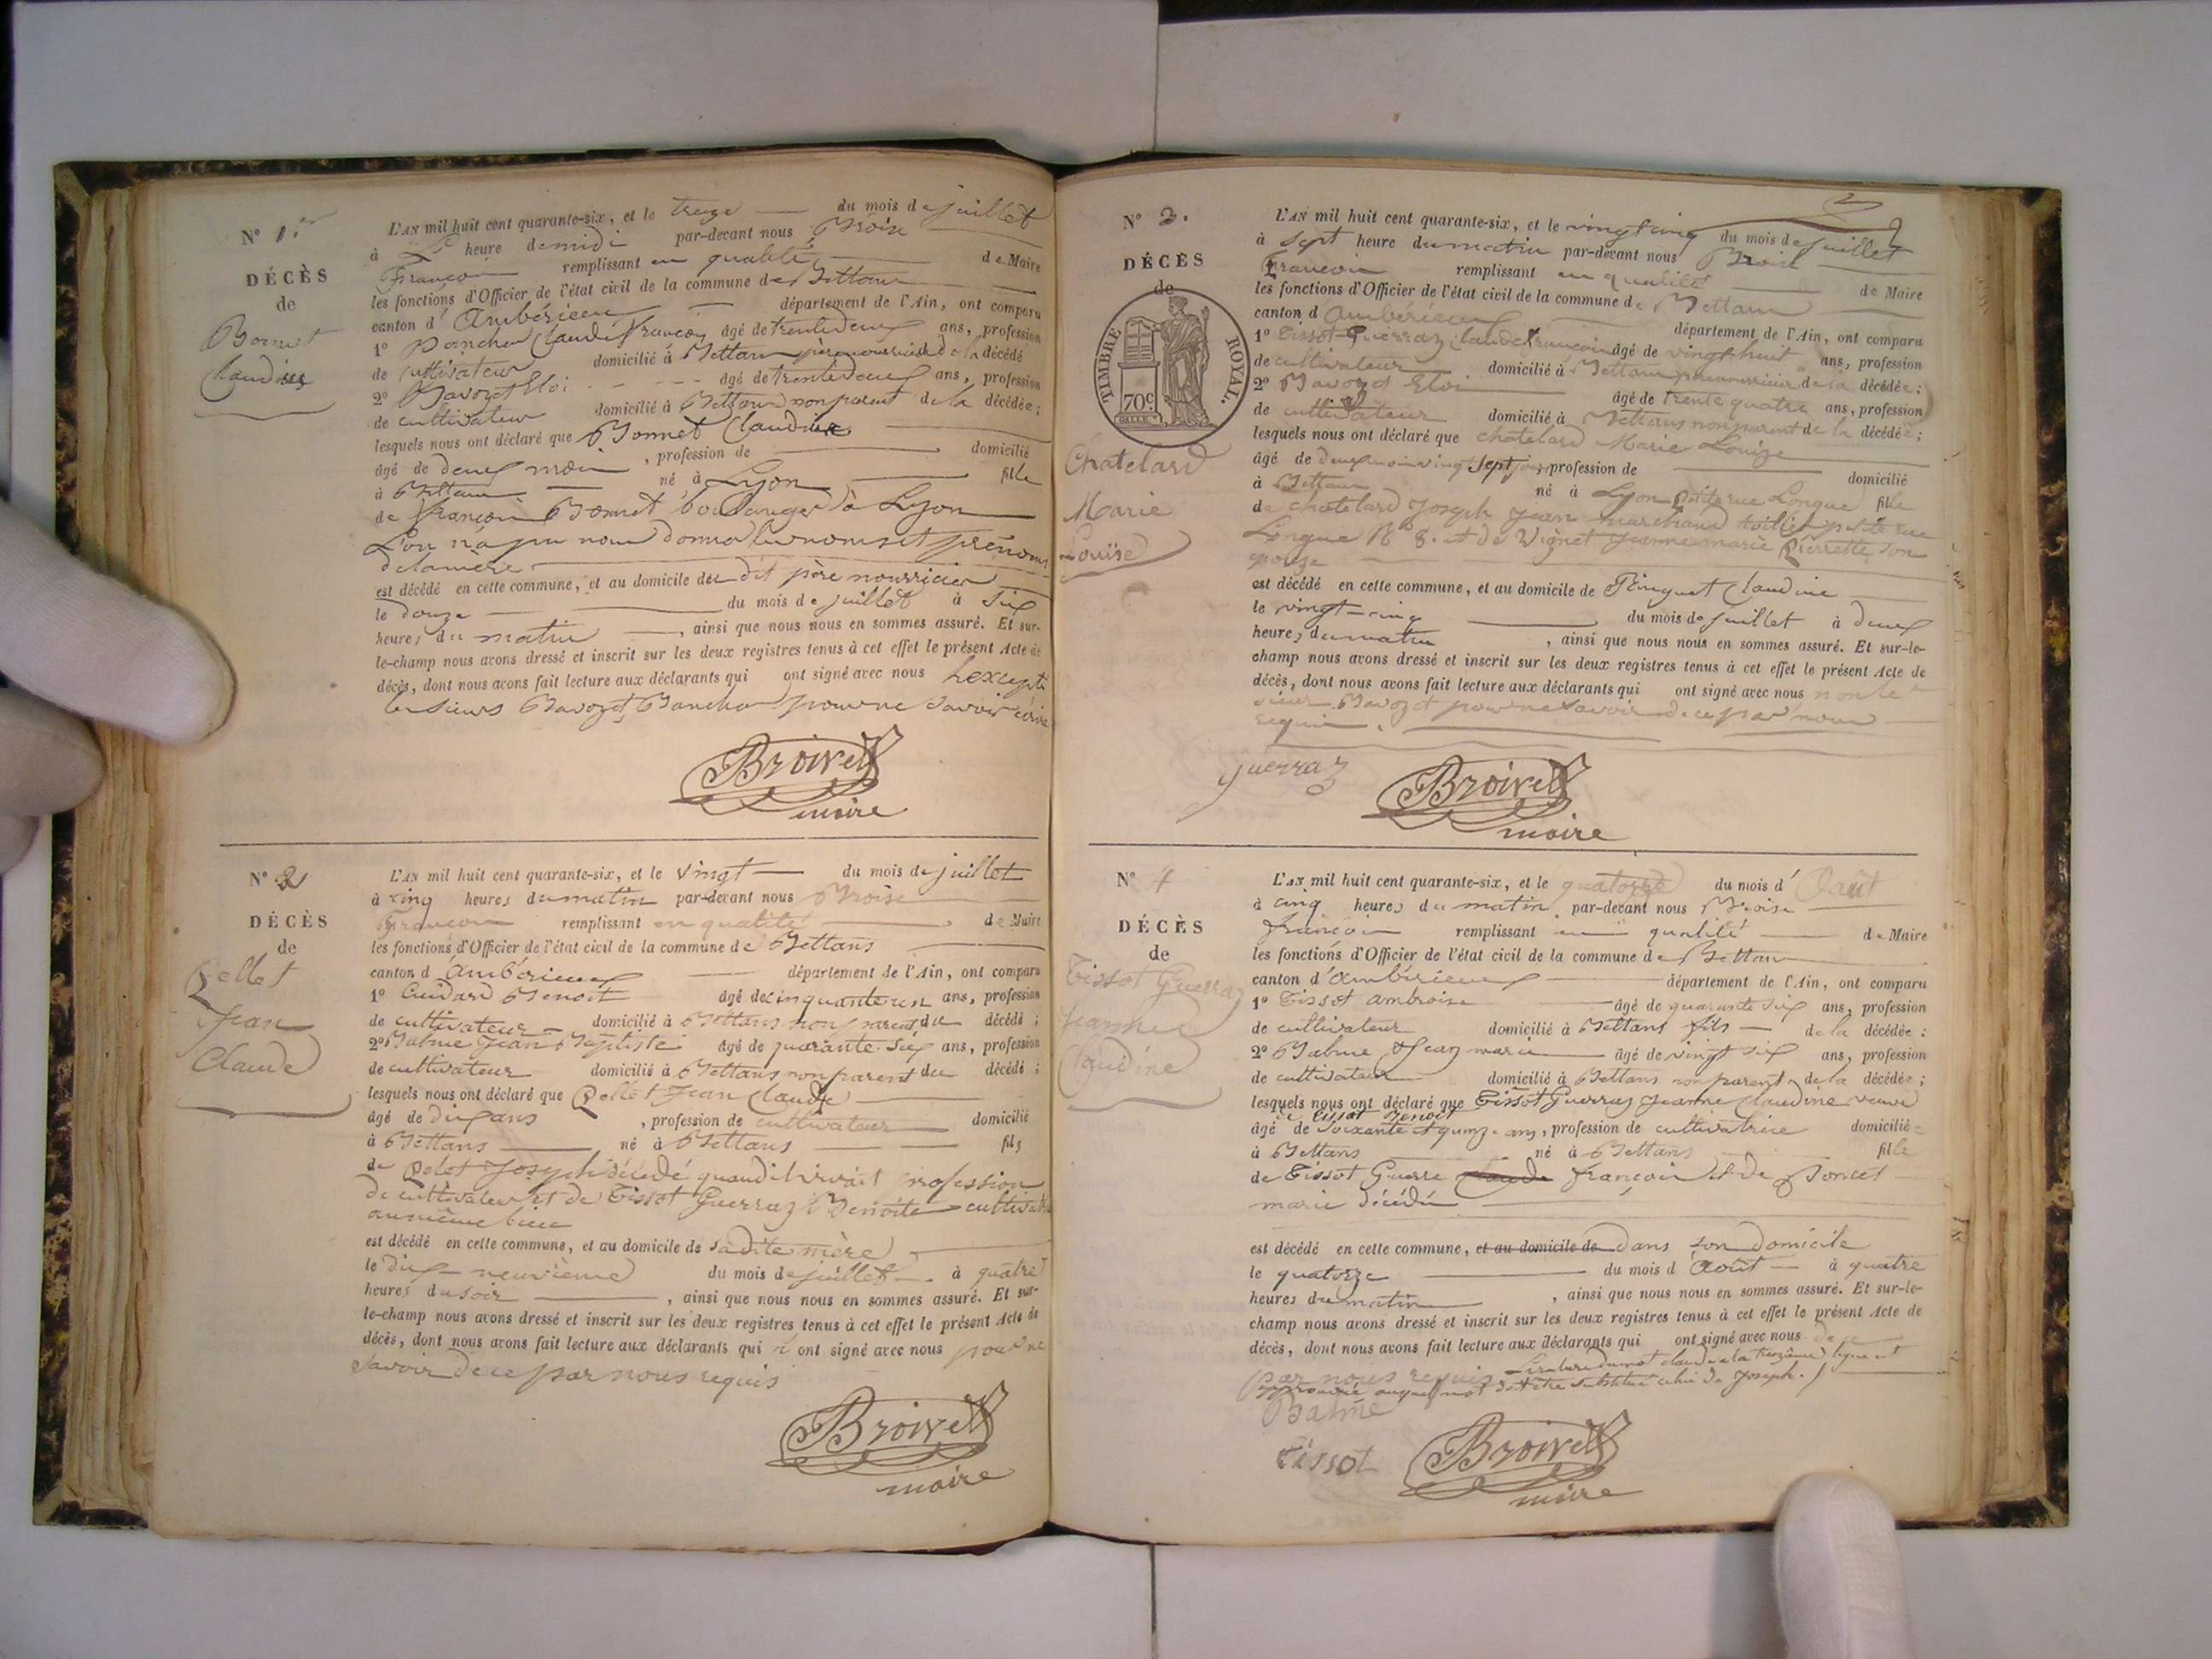 N° 1er
DÉCÈS
de
Bonnet
Claudine
L'AN mil huit cent quarante-six, et le treize du mois de juillet
à heure de midi par-devant nous Broise
François remplissant en qualité de Maire
les fonctions d'Officier de l'état civil de la commune de Bettans
canton d'Ambérieux département de l'Ain, ont comparu
1° Claude françois âgé de trente deux ans, profession
de cultivateur domicilié à Bettans père nourricier de la décédé
2° Bavozet Eloi âgé de trente deux ans, profession
de cultivateur domicilié à Bettans non parent de la décédée;
lesquels nous ont déclaré que Bonnet Claudine
âgé de deux mois, profession de domicilié
à Bettans né à Lyon fille
de françois Bonnet boulanger à Lyon
L'on n'a pu nous donner les noms et prénoms
de la mère
est décédé en cette commune, et au domicile du dit père nourricier
le douze du mois de juillet à six
heures du matin, ainsi que nous nous en sommes assuré. Et sur-
le-champ nous avons dressé et inscrit sur les deux registres tenus à cet effet le présent Acte de
décès, dont nous avons fait lecture aux déclarants qui ont signé avec nous
les sieurs Bavozet pour ne savoir écrire
Broise
maire
N° 2
DÉCÈS
de
Pellet
Jean
Claude
L'AN mil huit cent quarante-six, et le vingt du mois de juillet
à cinq heures du matin par-devant nous Broise
François remplissant en qualité de Maire
les fonctions d'Officier de l'état civil de la commune de Bettans
canton d'Ambérieux département de l'Ain, ont comparu
1° Cuidard Benoit âgé de cinquante un ans, profession
de cultivateur domicilié à Bettans non parent du décédé;
2° Balme Jean Baptiste âgé de quarante six ans, profession
de cultivateur domicilié à Bettans non parent du décédé;
lesquels nous ont déclaré que Pellet Jean Claude
âgé de dix ans, profession de cultivateur domicilié
à Bettans né à Bettans fils
de Pelet Joseph décédé quand il vivait profession
de cultivateur et de Tissot Guerraz Benoite
au même lieu
est décédé en cette commune, et au domicile de sa dite mère
le dix neuvième du mois de juillet à quatre
heures du soir, ainsi que nous nous en sommes assuré. Et sur-
le-champ nous avons dressé et inscrit sur les deux registres tenus à cet effet le présent Acte de
décès, dont nous avons fait lecture aux déclarants qui ont signé avec nous pour ne
savoir de ce par nous requis
Broise
maire
N° 3.
DÉCÈS
de
TIMBRE ROYAL.
70c
Chatelard
Marie
Louise
L'AN mil huit cent quarante-six, et le vingt cinq du mois de juillet
à sept heure du matin par-devant nous Broise
François remplissant en qualité de Maire
les fonctions d'Officier de l'état civil de la commune de Bettans
canton d'Ambérieux département de l'Ain, ont comparu
1° Tissot-Guerraz Claude françois âgé de vingt huit ans, profession
de cultivateur domicilié à Bettans père nourricier de la décédée;
2° Bavozet Eloi âgé de trente quatre ans, profession
de cultivateur domicilié à Bettans non parent de la décédée;
lesquels nous ont déclaré que chatelard Marie Louise
âgé de deux mois vingt sept jours, profession de domicilié
à Bettans né à Lyon petite rue Longue fille
de chatelard Joseph Jean marchand petite rue
Longue N° 8. et de Vignet Jeanne marie Pierrette son
épouse
est décédé en cette commune, et au domicile de Claudine
le vingt-cinq du mois de juillet à deux
heures du matin, ainsi que nous nous en sommes assuré. Et sur-le-
champ nous avons dressé et inscrit sur les deux registres tenus à cet effet le présent Acte de
décès, dont nous avons fait lecture aux déclarants qui ont signé avec nous non le
sieur Bavozet pour ne savoir de ce par nous
requis.
guerraz
Broise
maire
N° 4
DÉCÈS
de
Tissot Guerraz
Jeanne
Claudine
L'AN mil huit cent quarante-six, et le quatorze du mois d'août
à cinq heures du matin par-devant nous Broise
françois remplissant en qualité de Maire
les fonctions d'Officier de l'état civil de la commune de Bettans
canton d'Ambérieux département de l'Ain, ont comparu
1° Tissot ambroise âgé de quarante six ans, profession
de cultivateur domicilié à Bettans fils de la décédée:
2° Balme Jean marie âgé de vingt six ans, profession
de cultivateur domicilié à Bettans non parent de la décédée;
lesquels nous ont déclaré que Tissot Guerraz Jeanne Claudine veuve
de Tissot Benoit
âgé de soixante et quinze ans, profession de cultivatrice domicilié
à Bettans né à Bettans fille
de Tissot Guerre Claude françois et de Poncet
marie décédés
est décédé en cette commune, et au domicile de dans son domicile
le quatorze du mois d'Août à quatre
heures du matin, ainsi que nous nous en sommes assuré. Et sur-le-
champ nous avons dressé et inscrit sur les deux registres tenus à cet effet le présent Acte de
décès, dont nous avons fait lecture aux déclarants qui ont signé avec nous de ce
par nous requis La rature du mot claude à la treizième ligne est
approuvée auquel mot doit être substitué celui de Joseph.
Balme
Tissot
Broise
maire